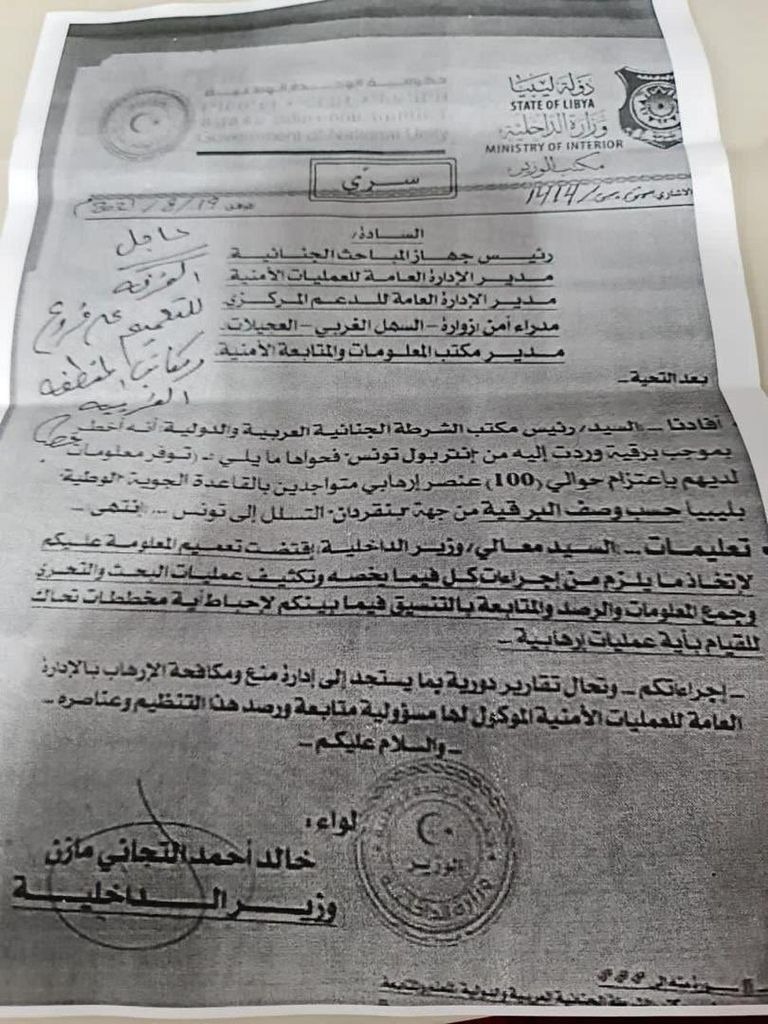 حكومة الوحدة الوطنية
Government of National Unity
دولة ليبيا
STATE OF LIBYA
وزارة الداخلية
MINISTRY OF INTERIOR
مكتب الوزير
سري
الاشاري 1414
السادة/
رئيس جهاز المباحث الجنائية
مدير الإدارة العامة للعمليات الأمنية
مدير الإدارة العامة للدعم المركزي
مدراء أمن ازوارة - السهل الغربي - العجيلات.
مدير مكتب المعلومات والمتابعة الأمنية.
عاجل
الغرفة
للتعميم على فروع
ومكاتب المنطقة
الغربية
بعد التحية ..
أفادنا .. السيد/ رئيس مكتب الشرطة الجنائية العربية والدولية: أنه أخطر
بموجب برقية وردت إليه من إنتربول تونس" فحواها ما يلي :- (توفر معلومات
لديهم بإعتزام حوالي (100) عنصر إرهابي متواجدين بالقاعدة الجوية "الوطية"
بليبيا حسب وصف البرقية من جهة "بنقردان" التسلل إلى تونس ... إنتهى ..
تعليمات .. السيد معالي/ وزير الداخلية: إقتضت تعميم المعلومة عليكم
لإتخاذ ما يلزم من إجراءات كل فيما يخصه وتكثيف عمليات البحث والتحري
وجمع المعلومات والرصد والمتابعة بالتنسيق فيما بينكم لإحباط أية مخططات تحاك
للقيام بأية عمليات إرهابية ..
.. إجراءاتكم .. وتحال تقارير دورية بما يستجد إلى إدارة منع ومكافحة الإرهاب بالإدارة
العامة للعمليات الأمنية الموكول لها مسؤولية متابعة ورصد هذا التنظيم وعناصره ..
.. والسلام عليكم ..
لواء:
خالد أحمد التجاني مازن
وزير الداخلية
الوزير
صورة منه إلى
الشرطة الجنائية العربية والدولية للعلم والمتابعة